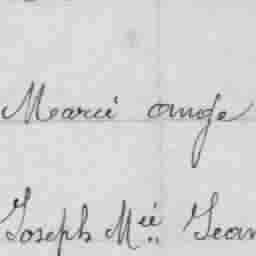 Marié ange
Joseph M.ié Jean